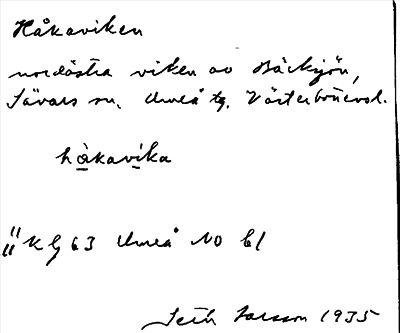 Håkaviken
nordöstra viken av Bäcksjön,
Sävars sn. Umeå tg. Västerbottensl.
hàkavíka
" Kg 63 Umeå NO bl
Seth Larsson 1935